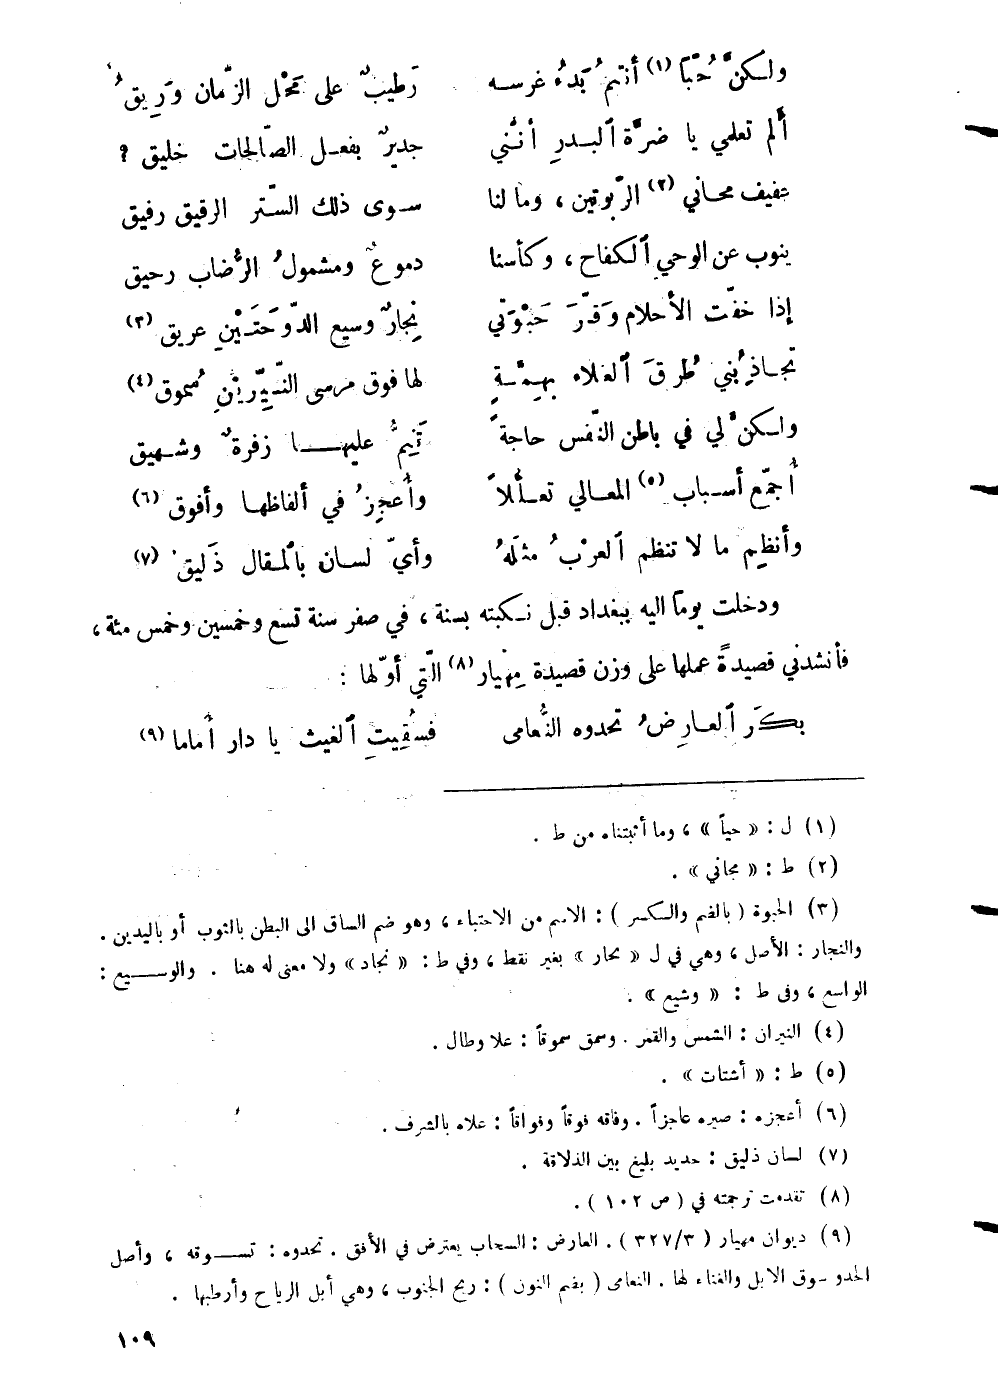 ولكنَّ حُبّاً (١) أنتمُ بَدءُ غرسه    رَطيبٌ على مَحْل الزّمان وَرِيقُ
ألم تعلمي يا ضرَّة ٱلبدرِ أنَّني    جديرٌ بفعل الصّالحات خليق ؟
عفيف محاني (٢) الرّبوتين ، وما لنا    سوى ذلك السّتر الرقيق رفيق
ينوب عن الوحي ٱلكفاح ، وكأسنا    دموعٌ ومشمولُ الرُّضاب رحيق
إذا خفّت الأحلام وَقَّرَ حَبْوَتي    نِجارٌ وسيع الدَّوحَتَيْنِ عريق (٣)
تجاذِبُني طُرقَ ٱلعلاء بهِمَّةٍ    لها فوق مرسى النَّيِّرَيْنِ سُموق (٤)
ولكنَّ لي في باطن النّفس حاجةً    تَنِمُّ عليها زفرةٌ وشهيق
أُجمّع أسباب (٥) المعالي تعلُّلاً    وأُعجِزُ في ألفاظها وأفوق (٦)
وأنظِم ما لا تنظم ٱلعرْبُ مثلَهُ    وأيّ لسان بٱلمقال ذَليق (٧)
ودخلت يوماً اليه ببغداد قبل نكبته بسنة ، في صفر سنة تسع وخمسين وخمس مئة ،
فأنشدني قصيدةً عملها على وزن قصيدة مِهْيار (٨) الّتي أوّلها :
بكَرَ ٱلعارِضُ تحدوه النُّعامى    فسُقِيتِ ٱلغيث يا دار أُماما (٩)
(١) ل : « حياً » ، وما أثبتناه من ط .
(٢) ط : « مجاني » .
(٣) الحبوة ( بالفم والكسر ) : الاسم من الاحتباء ، وهو ضم الساق الى البطن بالثوب أو باليدين .
والنجار : الأصل ، وهي في ل « بحار » بغير نقط ، وفي ط : « نجاد » ولا معنى له هنا . والوسيع :
الواسع ، وفي ط : « وشيع » .
(٤) النيران : الشمس والقمر . وسمق سموقاً : علا وطال .
(٥) ط : « أشتات » .
(٦) أعجزه : صيره عاجزاً . وفاقه فوقاً وفواقاً : علاه بالشرف .
(٧) لسان ذليق : حديد بليغ بين الذلاقة .
(٨) تقدمت ترجمته في ( ص ١٠٢ ) .
(٩) ديوان مهيار ( ٣٢٧/٣ ) . العارض : السحاب يعترض في الأفق . تحدوه : تسوقه ، وأصل
الحدو سوق الابل والغناء لها . النعامى ( بضم النون ) : ريح الجنوب ، وهي أبل الرياح وأرطبها .
١٠٩